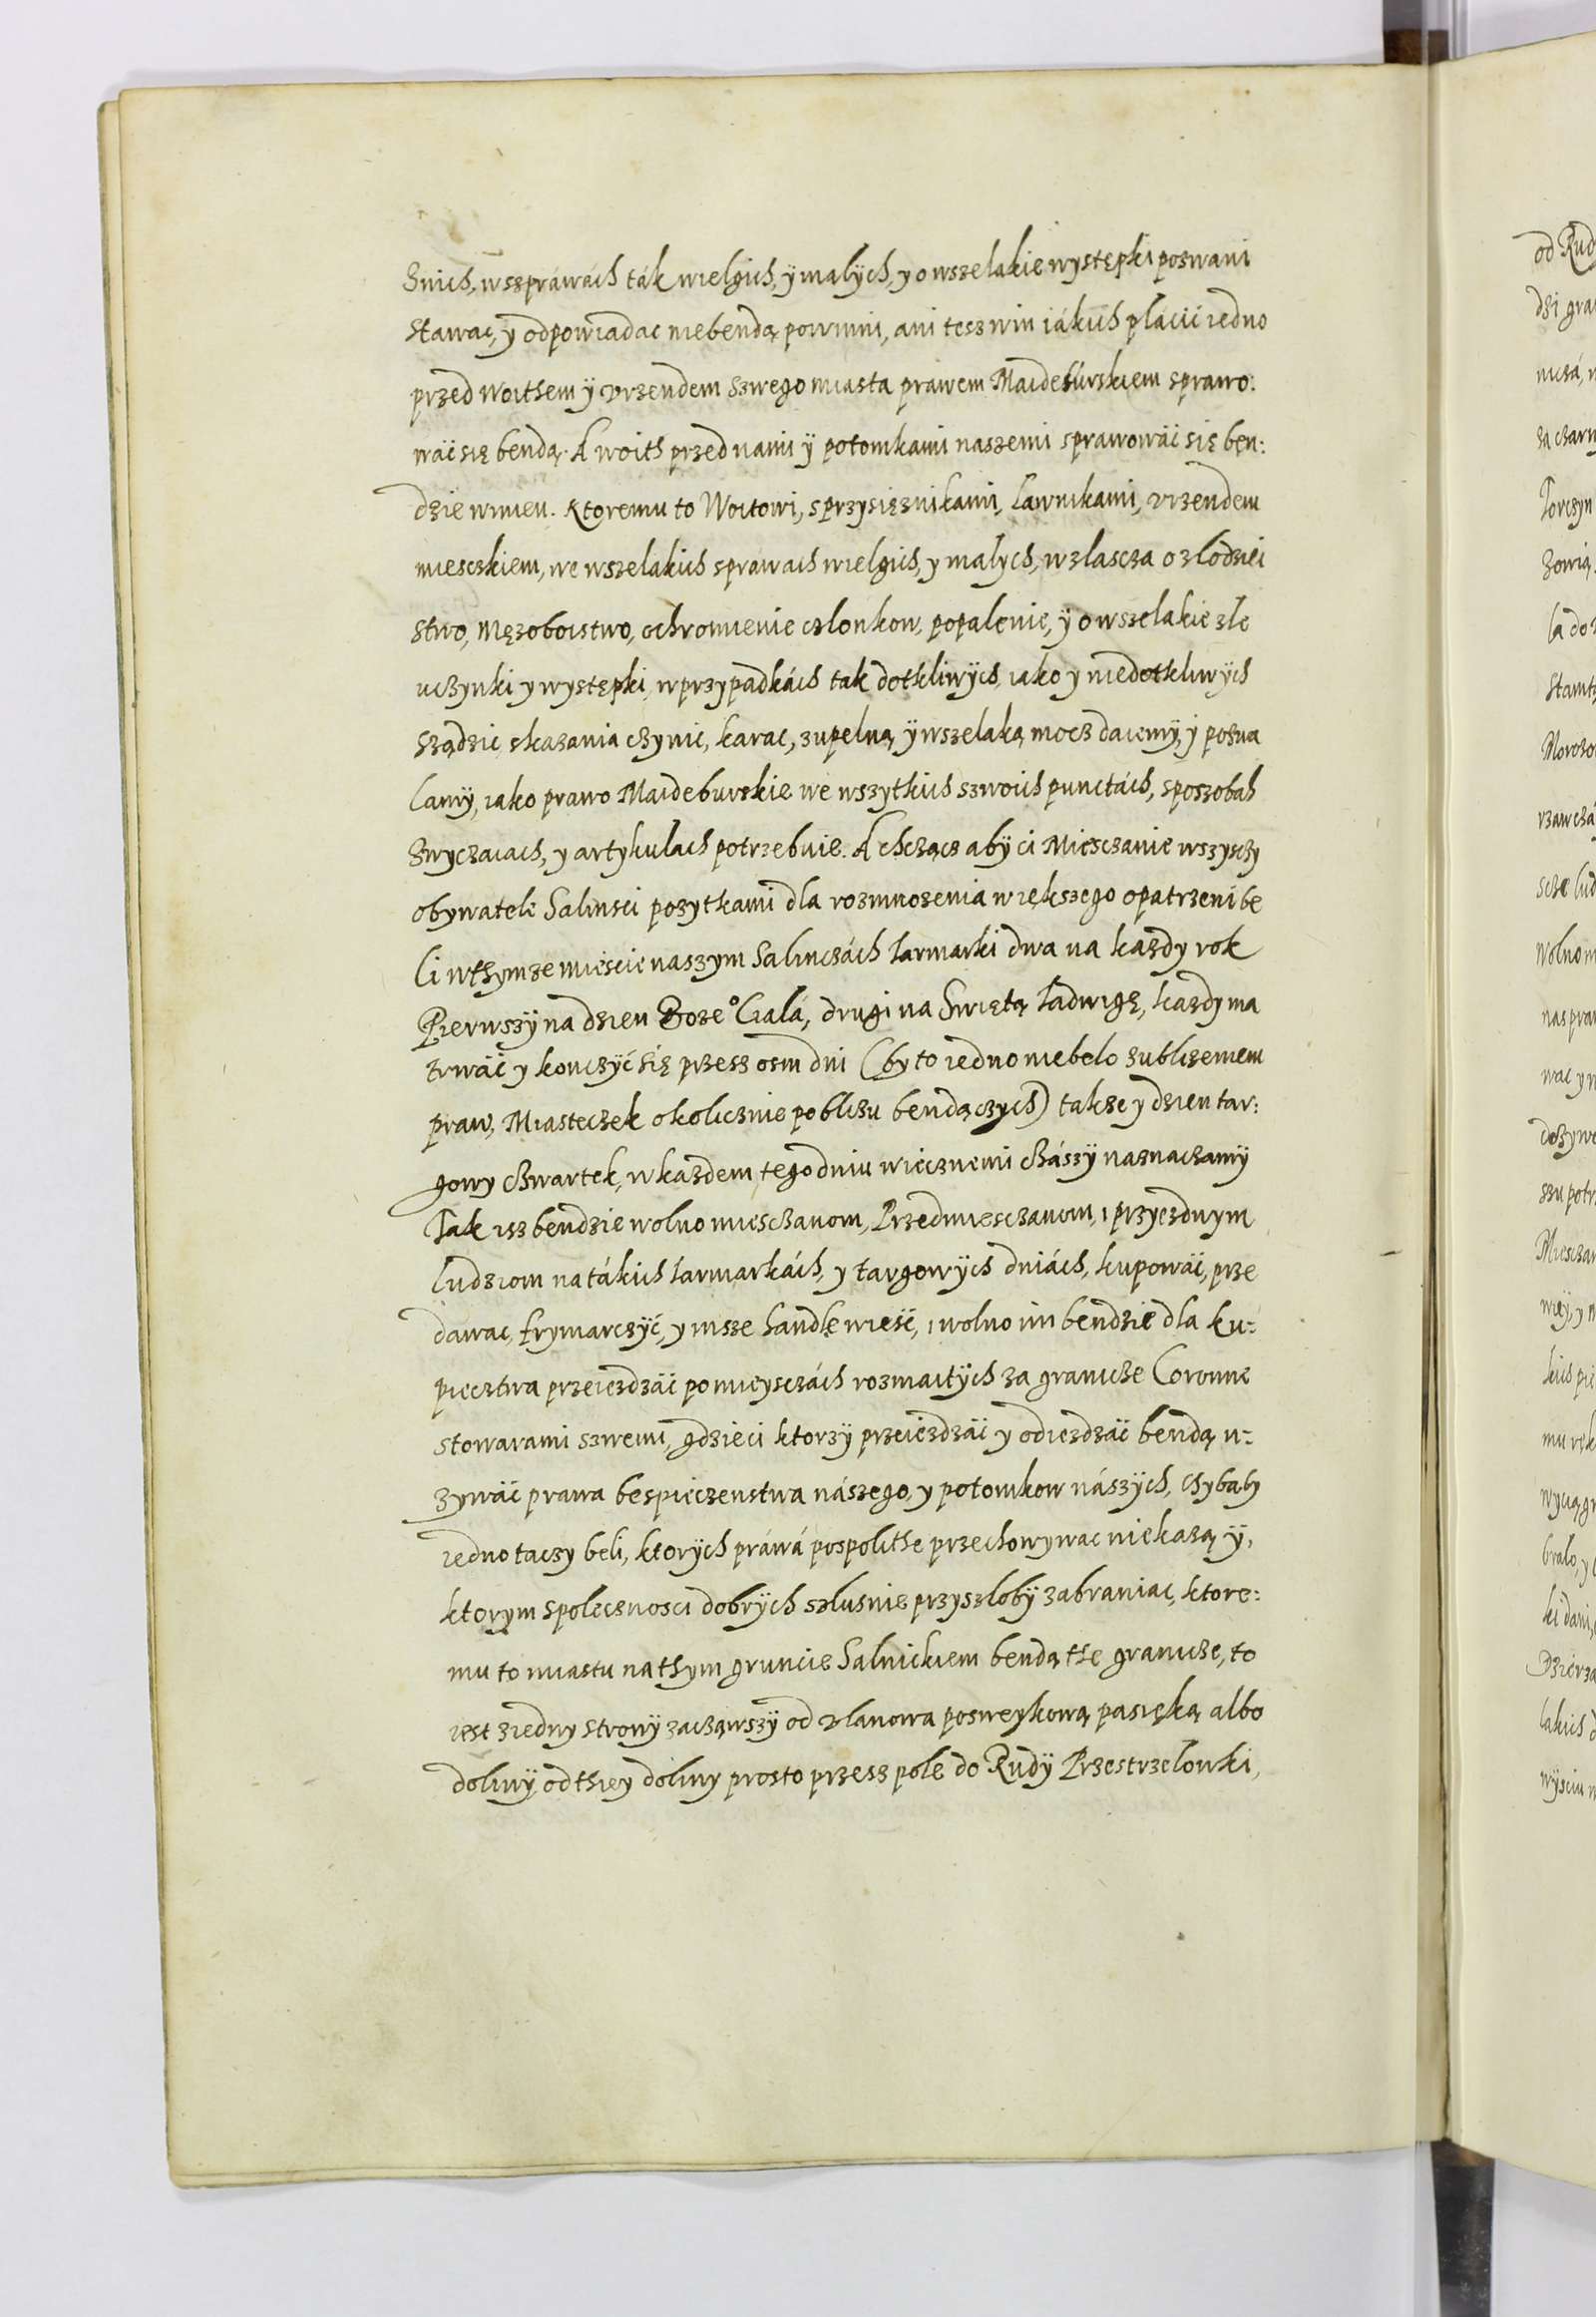 Znich, w szpráwách ták wielgich, ÿ malÿch, y o wszelakie występki pozwani
stawac, y odpowiadac niebendą powinni, ani tesz win iákich płácić iedno
przed Woithem ÿ vrzendem szwego miasta prawem Maideburskiem sprawo:
wáć się bendą. A woith przed nami ÿ potomkami naszemi sprawowáć się ben:
dzie winien. Ktoremu to Woitowi, sprzysiężnikami, ławnikami, vrzendem
miesczkiem, we wszelakich sprawach wielgich, y malych, wzlascza o zlodziei
stwo, Męzoboistwo, ochromienie członkow, popalenie, ÿ o wszelakie złe
uczynki y występki, w przypadkách tak dotkliwÿch, iako y niedotkliwÿch
sządzic, skazania czynic, karac, zupelną, ÿ wszelaką mocz daiemÿ, ÿ pozwa
lamÿ, iako prawo Maideburskie we wszytkich szwoich punctách, sposzobah
zwyczaiach, y artykulach potrzebuie. A chcząc abÿ ci Miesczanie wszysczy
obywatele Salinsci pozytkami dla rozmnozenia większego opatrzeni be
li w thymze mieście naszym Salinczách Iarmarki dwa na kazdy rok
Pierwszÿ na dzien Boze° Ciała, drugi na Swiętą Iadwigę, kazdy ma
trwáć y konczÿć się przesz osm dni (by to iedno niebelo z ublizeniem
praw, Miasteczek okolicznie poblizu bendączych) takze y dzien tar:
gowy czwartek, w kazdem tegodniu wiecznemi czászÿ naznaczamÿ
Iak isz bendzie wolno miesczanom, Przedmiesczanom, i przyezdnym
ludziom na tákich Iarmarkách, y targowÿch dniách, kupowáć, prze
dawac, frymarczÿć, y insze handle wieść, i wolno im bendzie dla ku=
pieczstwa przeiezdzáć po mieysczách rozmaitÿch za granicze Coronne
s towarami szwemi, gdzie ci ktorzÿ przeiezdzáć y odiezdzáć bendą u=
zywáć prawa bespieczenstwa nászego, y potomkow nászÿch, chybaby
iedno taczy beli, ktorÿch práwá pospolithe przechowywac nie każą ÿ,
ktorym spolecznosci dobrÿch szlusznie przyszlobÿ zabraniac, ktore:
mu to miastu na thym gruncie Salnickiem bendą the granicze, to
iest ziedny stronÿ zacząwszÿ od vlanowa poszreykową pasięką albo
dolinÿ, od thiey doliny prosto przesz pole do Rudÿ Przestrzelowki,